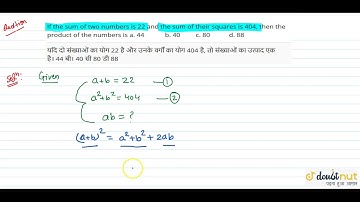 Question
If the sum of two numbers is 22 and the sum of their squares is 404, then the
product of the numbers is a. 44 b. 40 c. 80 d. 88
यदि दो संख्याओं का योग 22 है और उनके वर्गों का योग 404 है, तो संख्याओं का उत्पाद एक
है। 44 बी। 40 सी 80 डी 88
Soln. Given
a+b = 22 — ①
a²+b² = 404 — ②
ab = ?
(a+b)² = a²+b² + 2ab
doubtnut